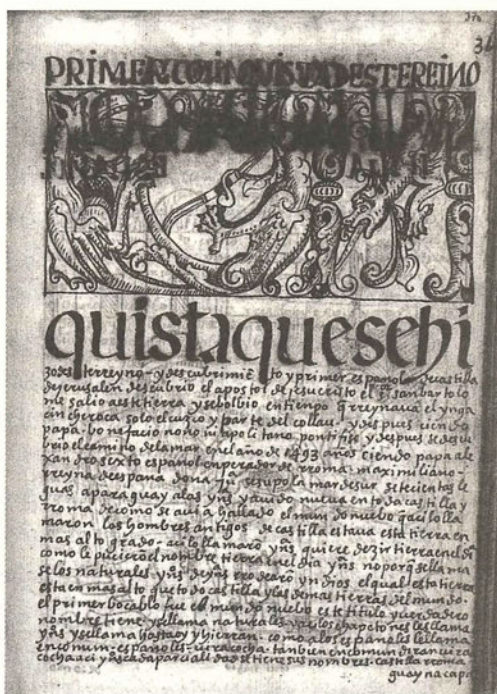 370
PRIMER CO[N]QVISTA DESTE REINO
quista que se hi
zo deste rreyno - y descubrimiē to y primer español de castilla
de yerusalen descubrio el apostol de jesucristo el sr san bartolo
me salio a esta tierra y se bolbio en tienpo q̄ rreynaua el ynga
cinche roca solo el cuzco y parte del collau - y despues ciendo
papa bonefacio nono napolitano pontifise y despues se descu
brio el camino de la mar en el año de 1493 años ciendo papa ale
xandro sexto español enperador de rroma maximiliano -
rreyna de españa dona ju se supo la mar de sur setecientas le
guas a paraguay a las yn̄s y auido nueua en toda castilla y
rroma de como se auia hallado el mundo nuebo q̄ aci lo lla
maron los hombres antigos de castilla estaua esta tierra en
mas alto grado - aci lo llamarō yn̄s quiere dezir tierra en el dia
como le pucieron el nombre tierra en el dia yn̄s no porq̄ se llama
se los naturales yn̄s de yn̄s rrodearo yn dios el qual esta tierra
esta en mas alto que todo castilla y las demas tierras del mundo -
el primer bocablo fue el mundo nuebo este titulo y uerdadero
nombre tiene y se llama naturales - y a los chapetones les llama
yn̄s y se llama hasta oy y hierran - como a los españoles le llama
en comun - españoles - uiracocha - tanbien en comun diran uira
cocha aci y a cada parcialidad se tiene sus nombres - castilla rroma
guayna capa